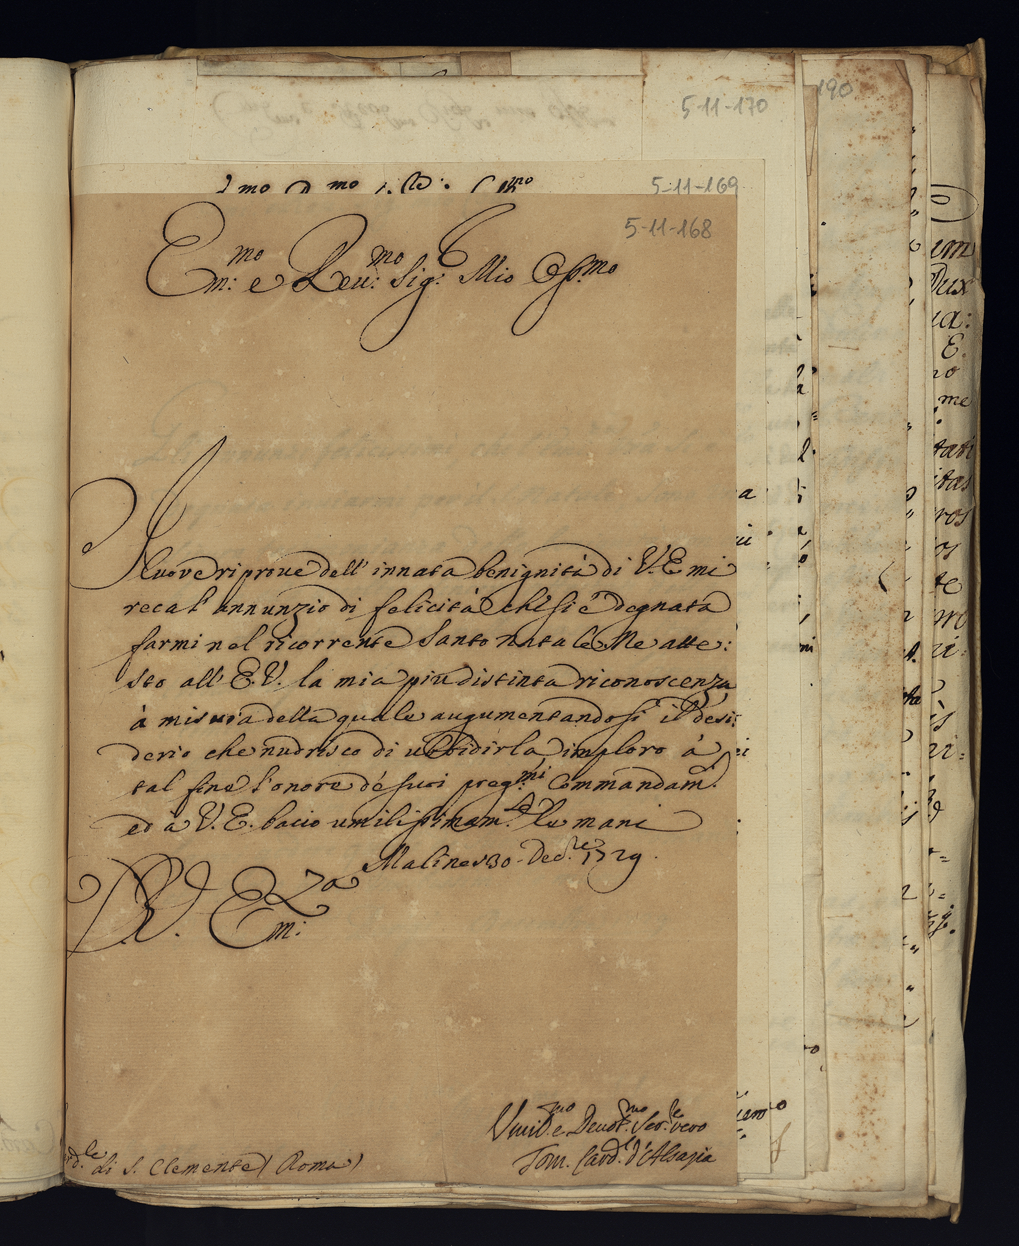 190
5-11-170
5-11-169
5-11-168
Em:mo e Reu:mo Sig:r Mio Oss:mo
Nuove riproue dell' innata benignità di V. E mi
reca l' annunzio di felicità che si è degnata
farmi nel ricorrente Santo natale. Ne atte:
sto all' E. V. la mia piu distinta riconoscenza
à misura della quale augumentandosi il desi:
derio che nudrisco di ubbidirla imploro à
tal fine l'onore de suoi preg:mi Commandam:ti
ed à V. E. bacio umilissimam:te le mani
Malines 30 Dec:re 1729.
D. V. Em:za
Umil:mo e Deuot:mo Ser:re vero
Tom. Card:l d'Alsazia
di S. Clemente (Roma)